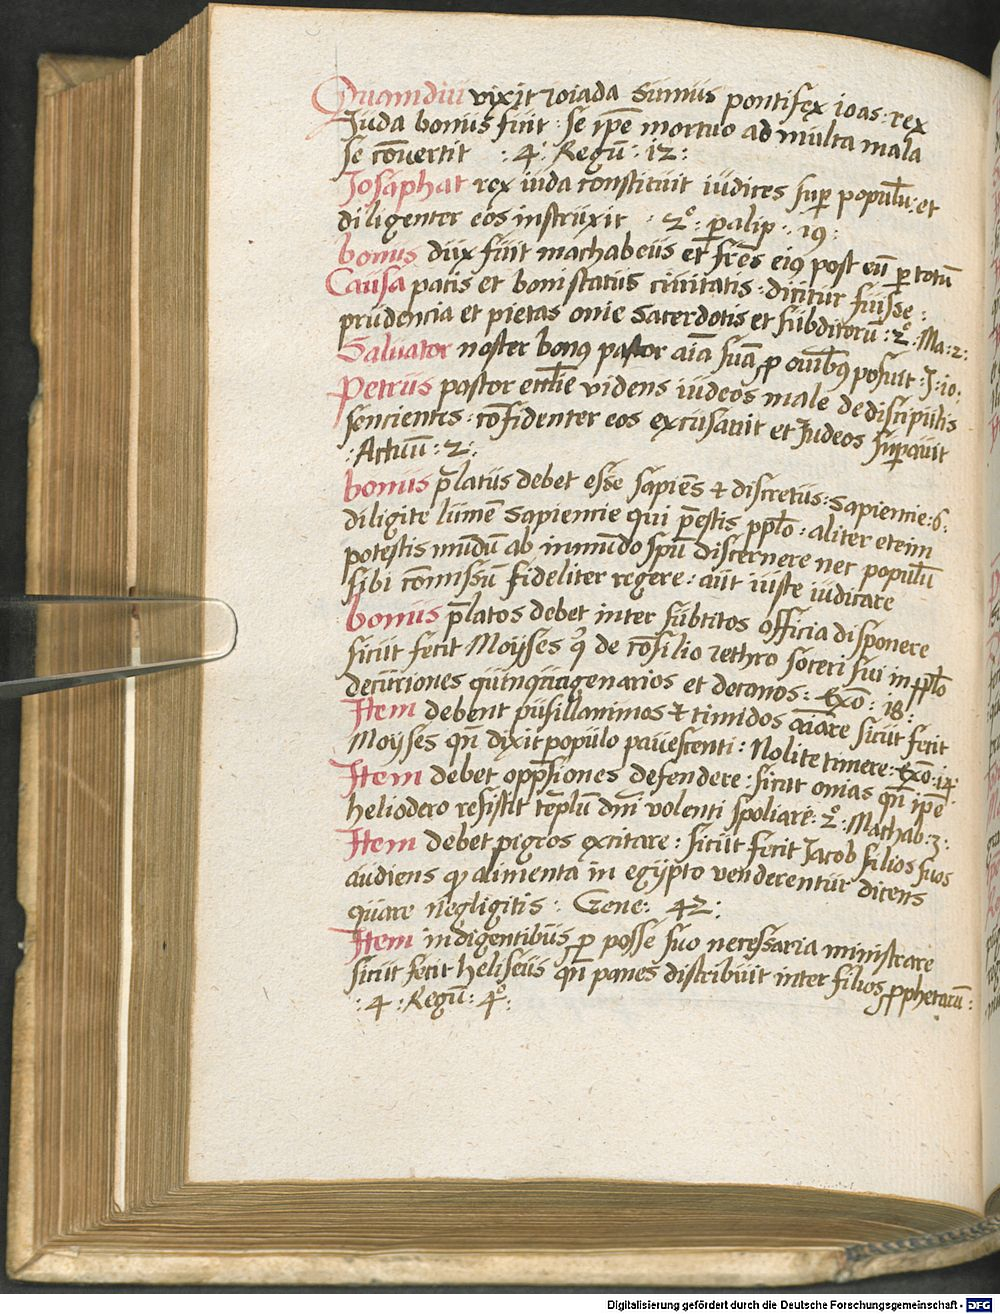 Quamdiu vixit ioiada sum̄us pontifex ioas: rex
Juda bonus fuit · se ip̄e mortuo ad multa mala
se cōuertit : 4 · Regū · 12 :
Josaphat rex iuda constituit iudices sup̱ populū: et
diligenter eos instruxit · 2º · p̱alip · 19 :
bonus dux fuit machabeus et fr̄es eiꝰ post eū p̱ totū
Causa pacis et boni status ciuitatis · dicitur fuisse :
prudencia et pietas onie sacerdotis et subditorū : 2º · Ma: 2:
Saluator noster bonꝰ pastor aīa suā ꝓ ouibꝰ posuit · J · 10 :
Petrus pastor eccl̄ie videns iudeos male de discipulis
sencientes · cōfidenter eos excusauit et Judeos sup̱auit
: Actuū : 2 :
bonus p̄latus debet esse sapiēs et discretus: Sapiencie: 6 ·
diligite lumē sapiencie qui p̄estis pp̄lo · aliter eteim
potestis mūdū ab inmūdo spū discernere nec populū
sibi cōmissū fideliter regere: aut iuste iudicare
bonus p̄latos debet inter subtitos officia disponere
sicut fecit Moÿses qͥ de cōsilio iethro soceri sui in pp̄lo
decuriones quinquagenarios et decanos : Exō : 18 :
Item debent pusillanimos et timidos aīare sicut fecit
Moÿses qn̄ dixit populo pauescenti : Nolite timere: exō : 14
Item debet opp̄siones defendere : sicut onias qn̄ ip̄e
heliodero resistit tēplū dn̄i volenti spoliare: 2º · Machab: 3 :
Item debet pigros excitare : sicut fecit Jacob filios suos
audiens qꝫ alimenta in egÿpto venderentur dicens
quare negligitis : Gene: 42 :
Item indigentibus p̱ posse suo necessaria ministrare
sicut fecit heliseus qn̄ panes distribuit inter filios ꝓphetarū :
: 4 : Regū : 4º :
Digitalisierung gefördert durch die Deutsche Forschungsgemeinschaft - DFG